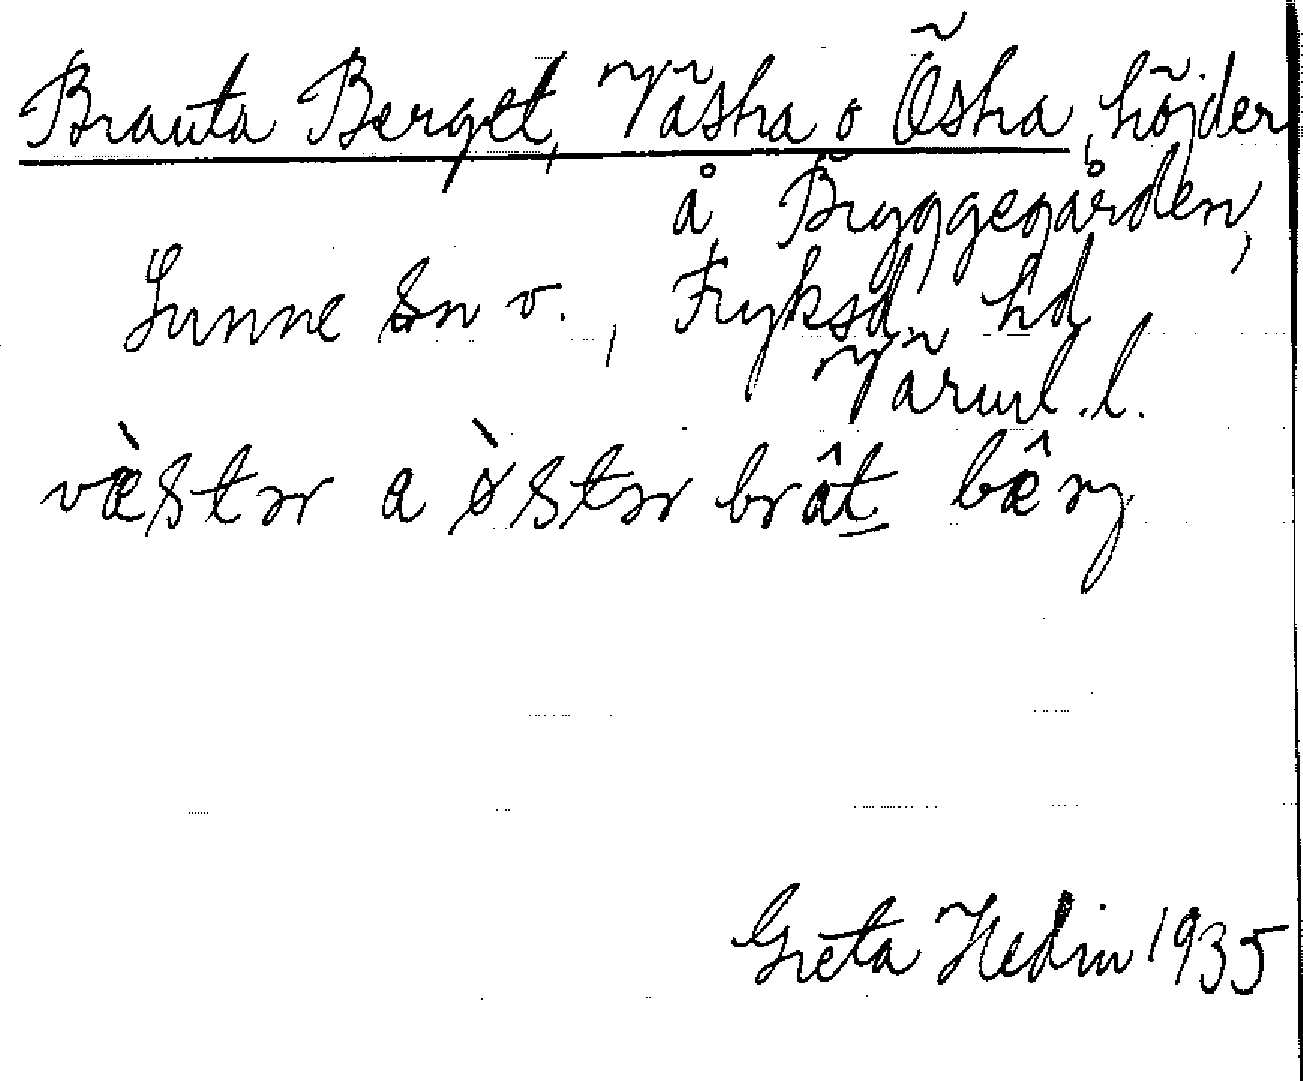 Brauta Berget, Västra o Östra, höjder
å Bryggegården,
Sunne sn v., Fryksd. hd
Värml. l.
væ̀stər a ø̀stər brât bæ̂rj
Greta Hedin 1935